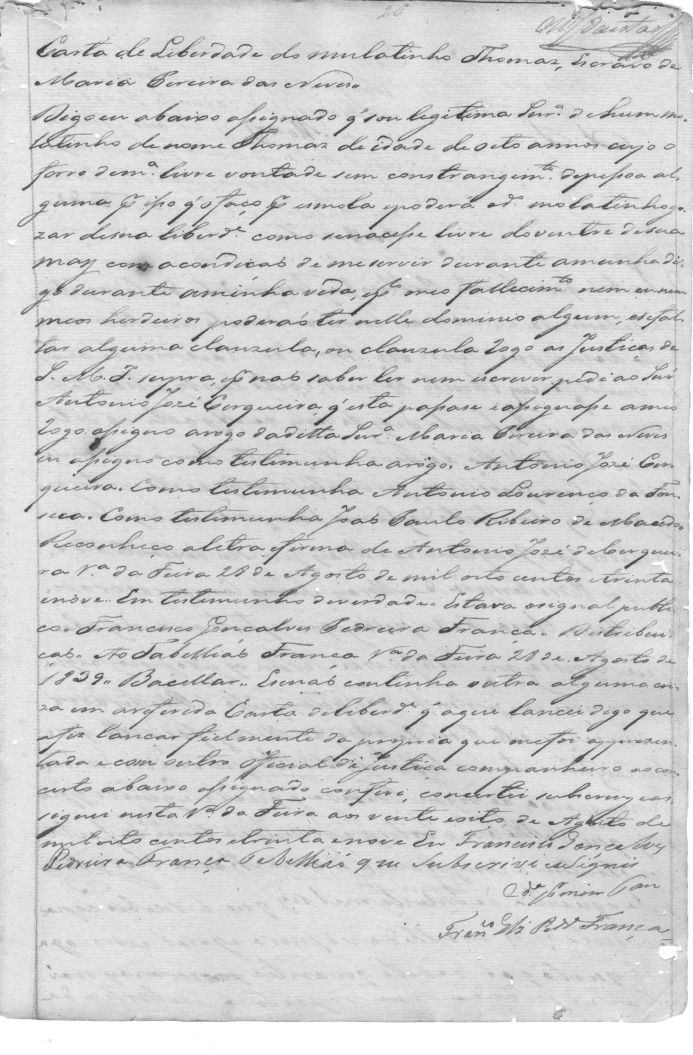 26
Carta de Liberdade do mulatinho Thomaz, Escravo de
Maria Pereira das Neves.
Digo eu abaixo asignado q' sou legitima Snr.ª de hum mo-
latinho de nome Thomaz de idade de oito annos cujo o
forro de m.ª livre vontade sem constrangem.to de pessoa al-
guma e p isso q' o faço p esmola e poderá o d.º molatinho go-
zar de sua liberd.e como se nacese livre do ventre de sua
may com a condicaõ de me servir durante aminha di-
go durante aminha vida, e p.r meo fallecim.to nem eu nem
meos herdeiros poderaõ ter nelle dominio algum, e se fal-
tar alguma clauzula, ou clauzulas rogo as Justiças de
S. M. I. supra, e p naõ saber ler nem escrever pedi ao Snr
Antonio José Cerqueira q' esta pasase e asignase a meo
rogo. asigno arogo da ditta Snr.ª Maria Pereira das Neves
eu asigno como testimunha arogo. Antonio José Cer-
queira. Como testimunha Antonio Lourenço da Fon-
seca. Como testimunha Joaõ Paulo Ribeiro de Macedo.
Reconheco aletra e firma de Antonio José de Cerquei-
ra V.ª da Feira 28 de Agosto de mil oito centos e trinta
e nove. Em testimunho de verdade. Estava o signal publi-
co. Francisco Gonçalves Pedreira Franca. Distribui-
caõ. Ao Tabelliaõ Franca V.ª da Feira 28 de Agosto de
1839. Bacellar. E se naõ continha outra alguma cou-
za em areferida Carta de liberd.e q' aqui lancei digo que
a fiz lancar fielmente da propria que me foi apprezen-
tada e com outro Official de Justica companheiro ao con-
certo abaixo asignado conferi, concertei subscrevy e as-
signei nesta V.ª da Feira aos vinte e oito de Agosto de
mil oito centos e trinta e nove Eu Francisco Goncalves
Pedreira França Tabelliaõ que subscrivi e asignei
Fran.co Glz Pedr.ª França